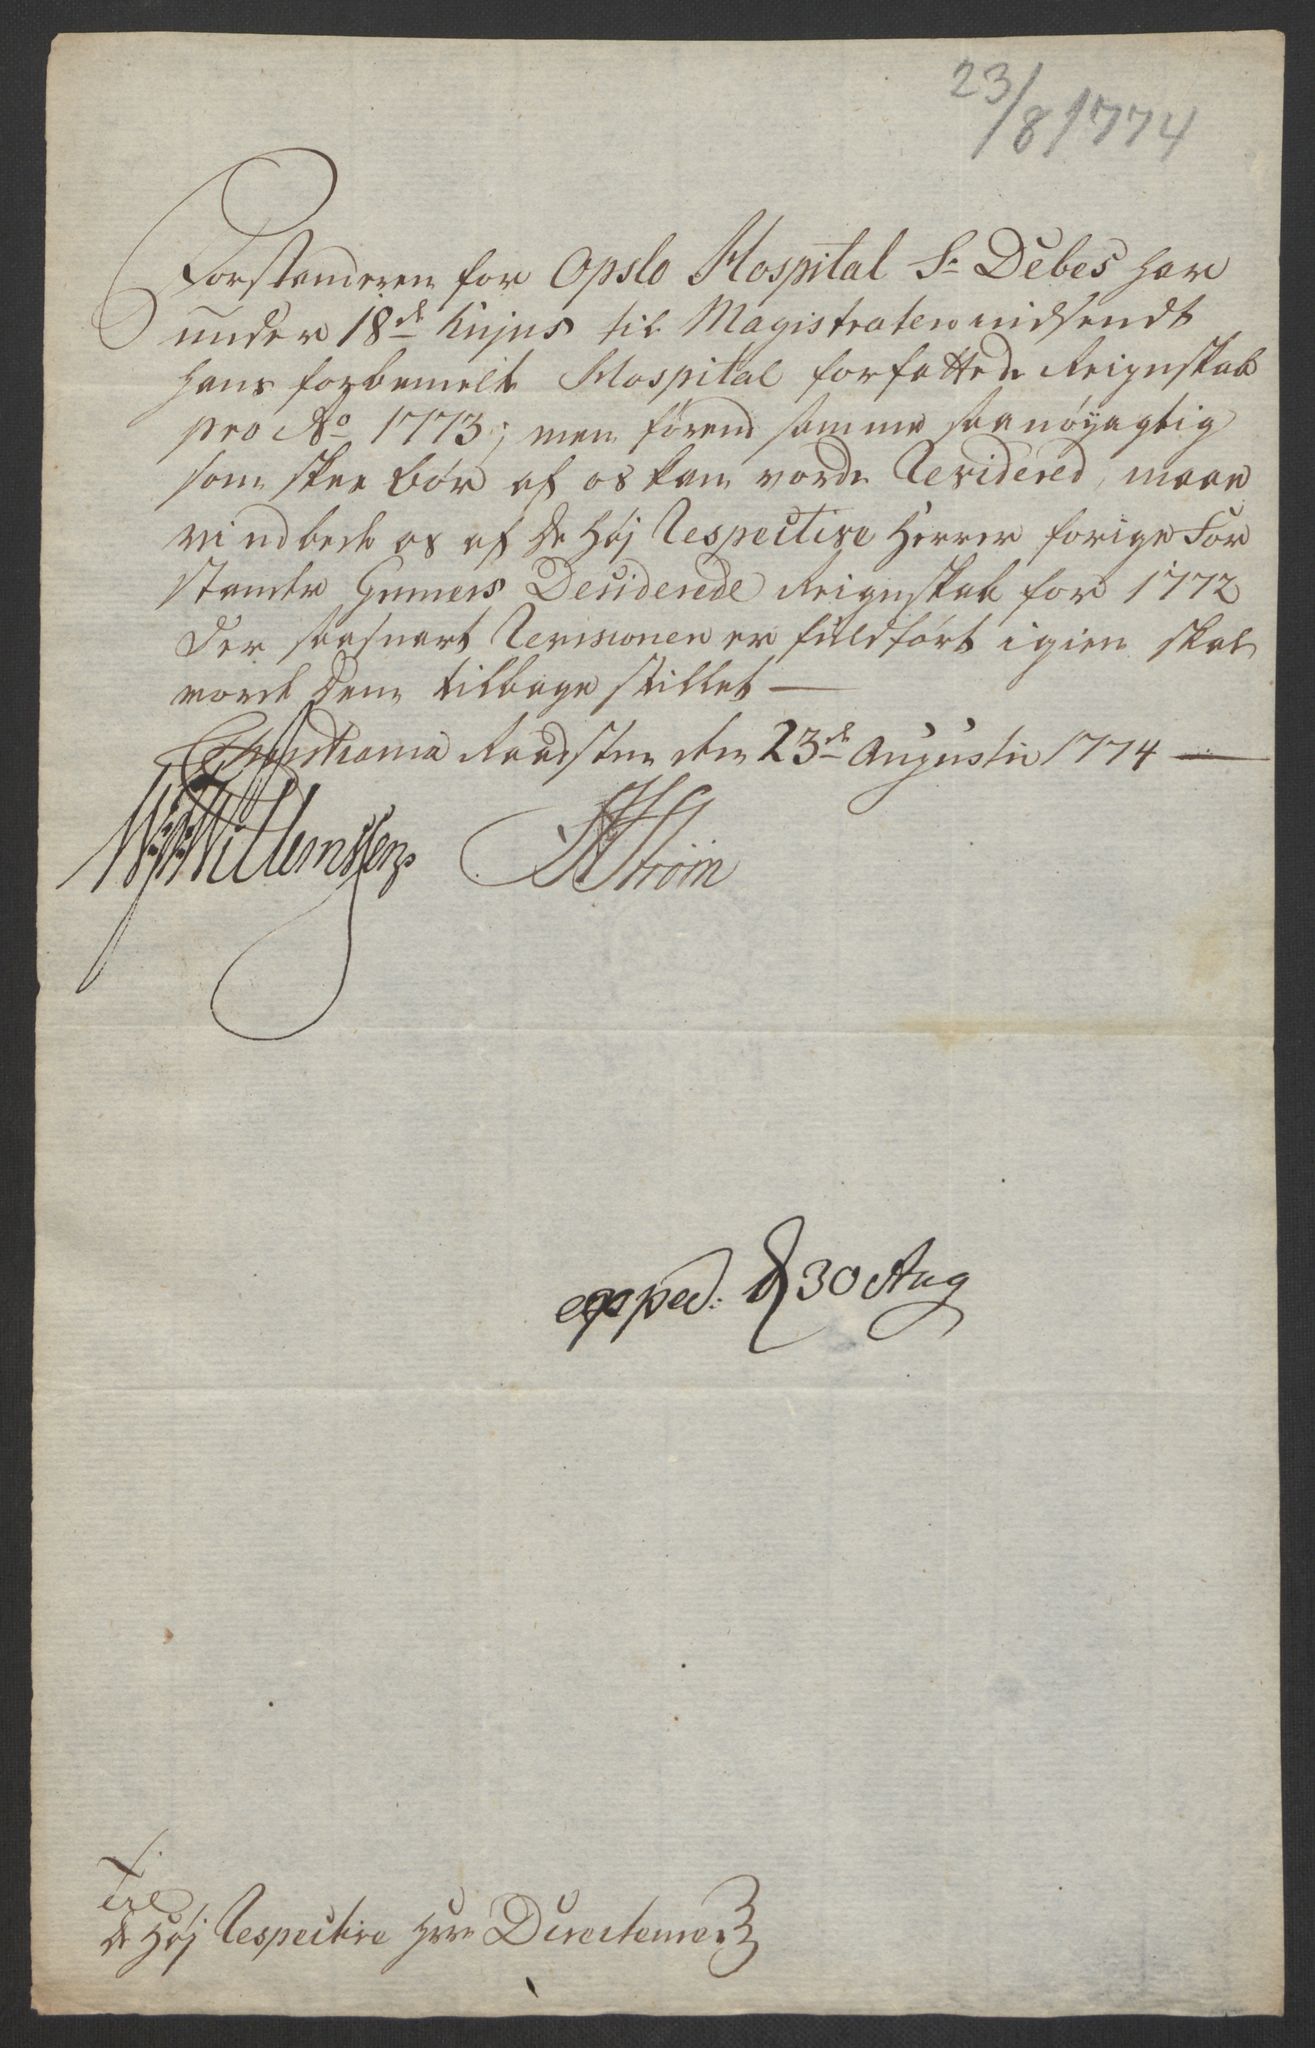 23/8 1774
Forstanderen for Opslo Hospital Sr. Debes har
under 18de hujus til Magistraten indsendt
hans for bemelte Hospital forfattede Reignskab
pro Ao 1773; men førend samme saa nøyagtig
som skee bør af os kan vorde Revidered, maae
vi udbede os af De Høj Respective Herrer forige For
stander Desiderede Reignskab for 1772
der saasnart Revisionen er fuldført igien skal
vorde Dem tilbage stillet —
Christiania Raadstue den 23de Augustii 1774 —
Willemssen Strøm
exped. d 30 Aug
Til
de Høj Respective Herr Directeurer